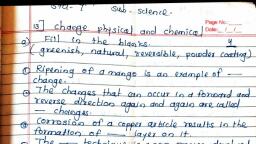 Std- 7 Sub- science.
Page No.
Date
13] change physical and chemical
a) Fill in the blanks.
( greenish, natural, reversible, powder coating)
① Ripening of a mango is an example of —
change.
② The changes that can occur in a forward and
reverse direction again and again are called
— changes.
③ Corrosion of a copper article results in the
formation of — layer on it.
④ The — technique is